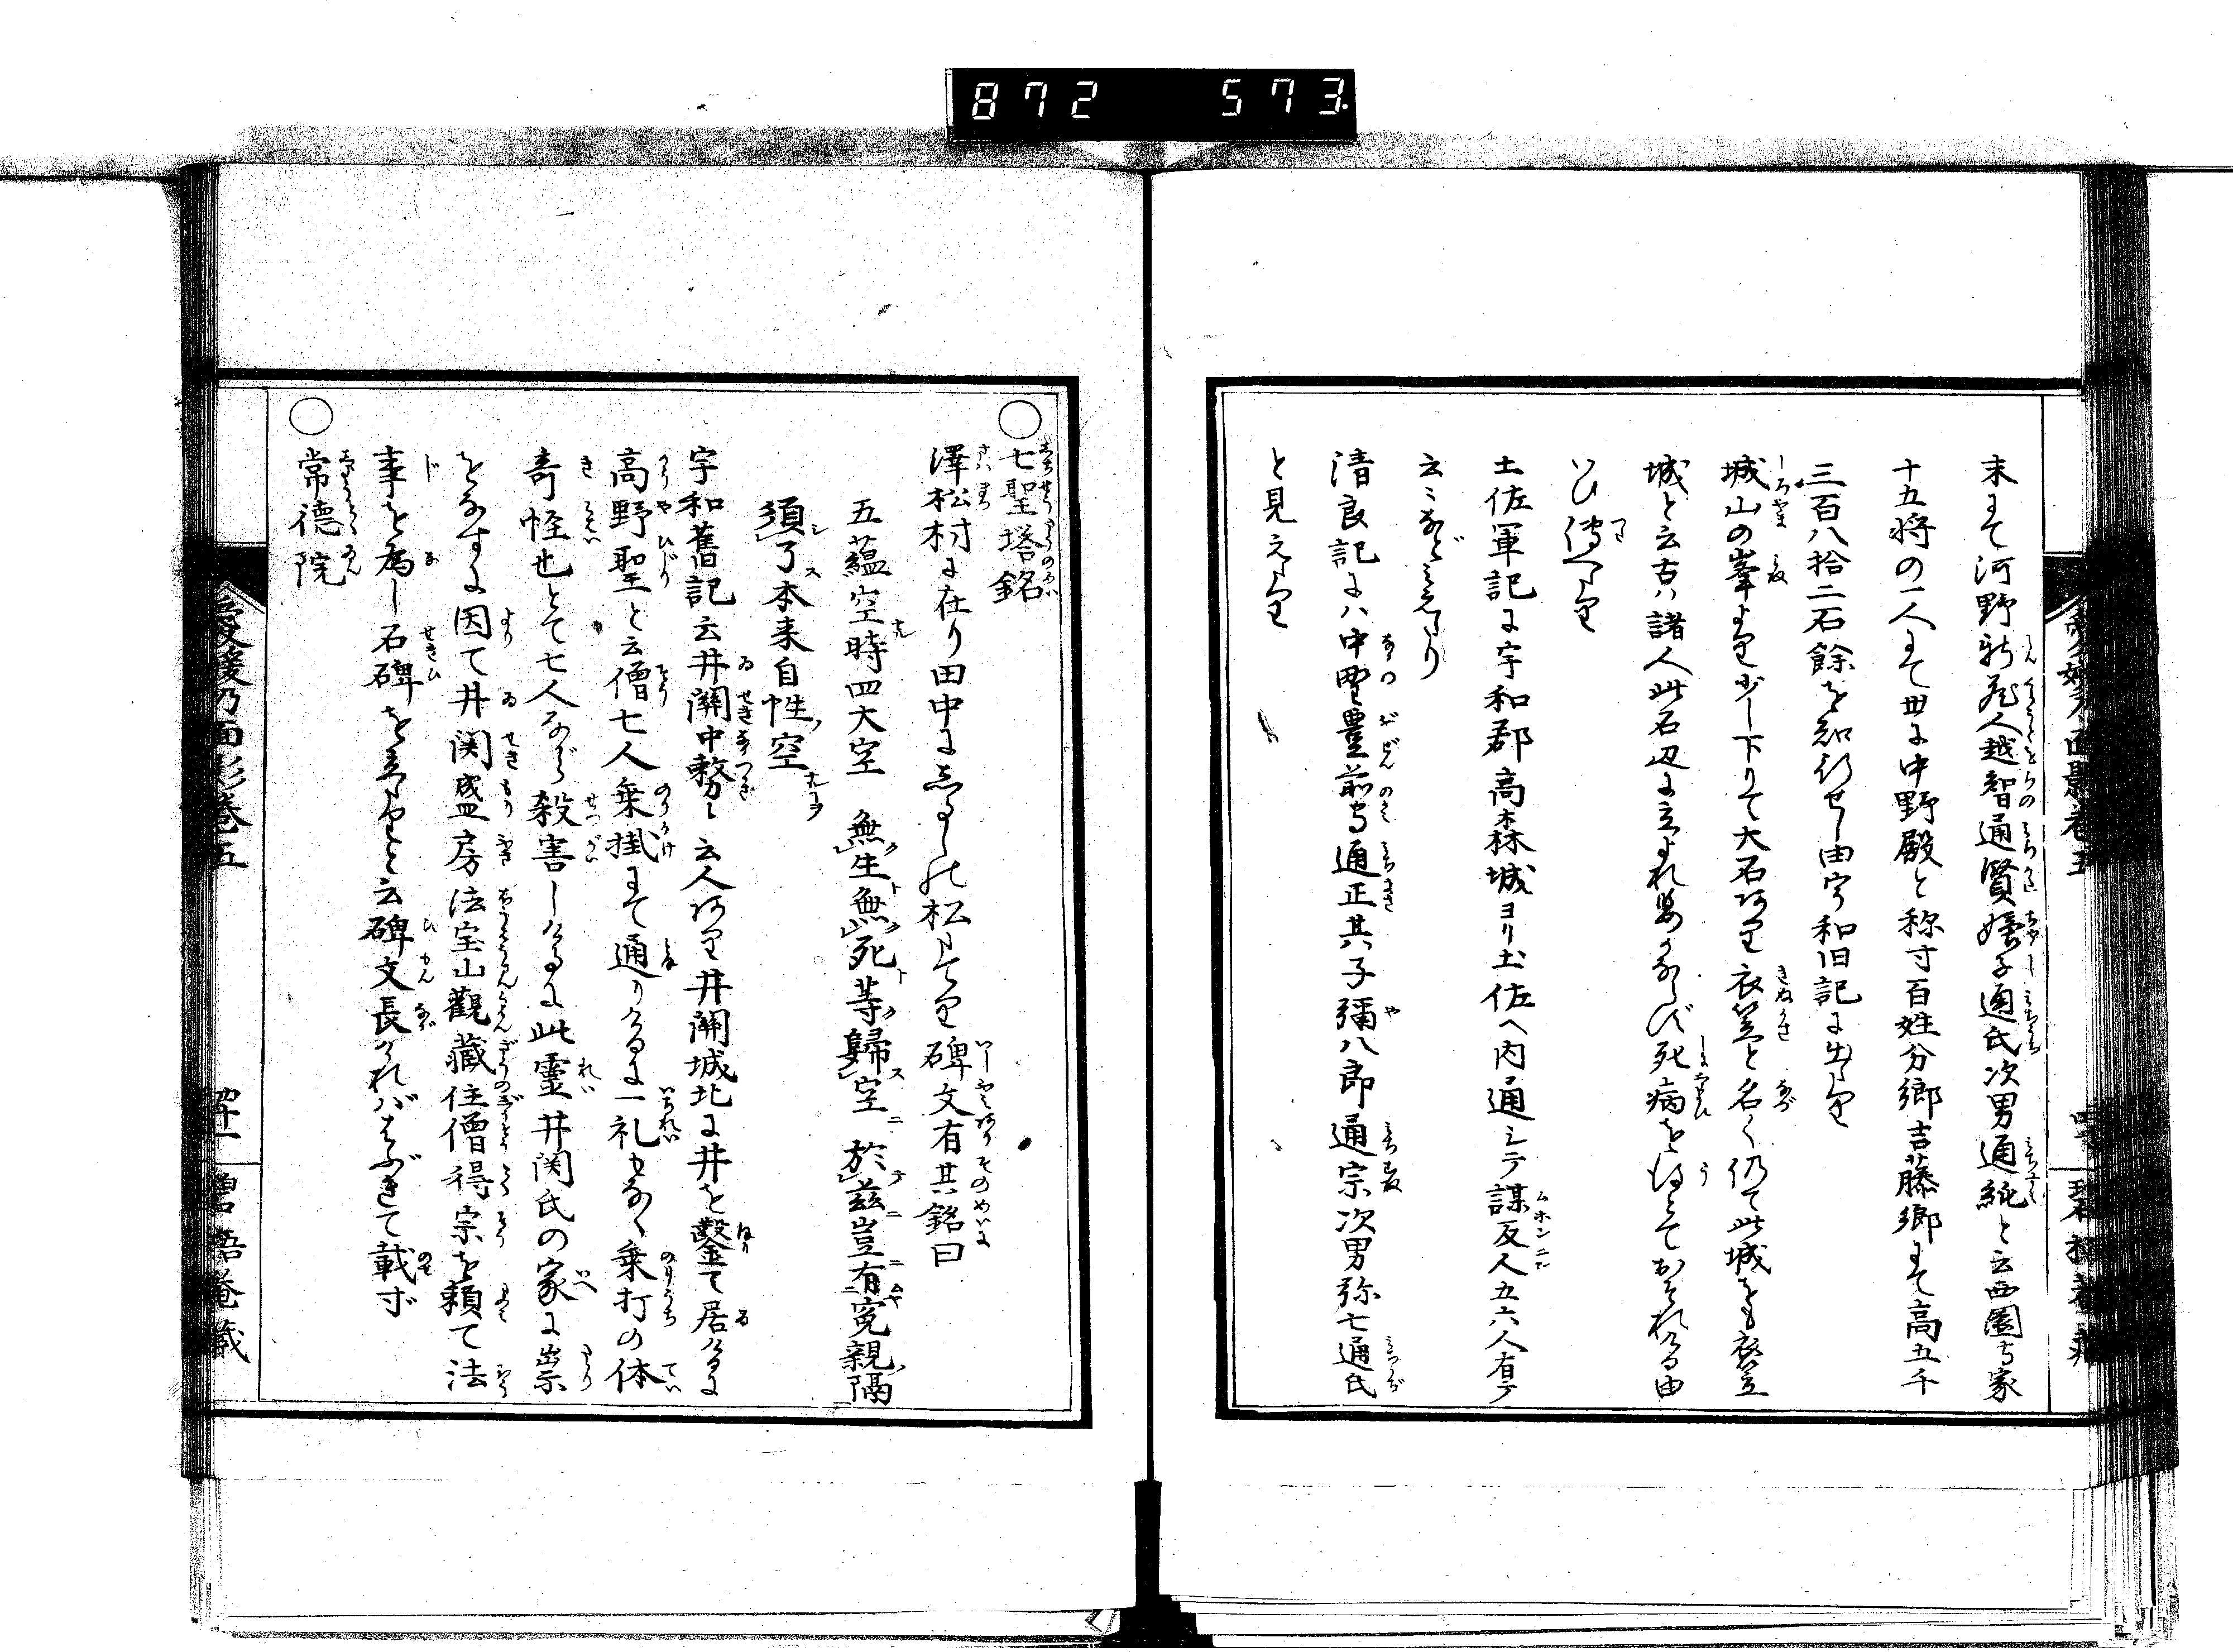 872 573
末にて河野新蔵人越智通賢嫡子通氏次男通純と云西園寺家
十五将の一人にて世に中野殿と称す百姓分郷吉藤郷にて高五千
三百八拾二石餘を知行せし由宇和旧記に出たり
城山の峯より少し下りて大石あり衣笠と名く仍て此城をも衣笠
城と云古ハ諸人此石辺に立よれ必死病を得とておそれける由
いひ傳へたり
土佐軍記に宇和郡高森城ヨリ土佐ヘ内通シテ謀反人五六人有テ
云々などみえたり
清良記にハ中野豊前守通正其子彌八郎通宗次男弥七通氏
と見えたり
○七聖塔銘
澤松村に在り田中にしるしの松あり碑文有其銘曰
五蘊空時四大空 無生無死等歸空 於茲豈有冤親隔
須了本来自性空
宇和舊記云井關中務と云人あり井関城北に井を鑿て居けるに
高野聖と云僧七人乗掛にて通りけるに一礼もなく乗打の体
奇怪也とて七人ながら殺害しけるに此霊井関氏の家に祟
をなすに因て井関盛房法宝山觀藏住僧得宗を頼て法
事を為し石碑を立たりと云碑文長ければはぶきて載ず
○常徳院
愛媛乃面影巻五 四十一 碧梧菴蔵